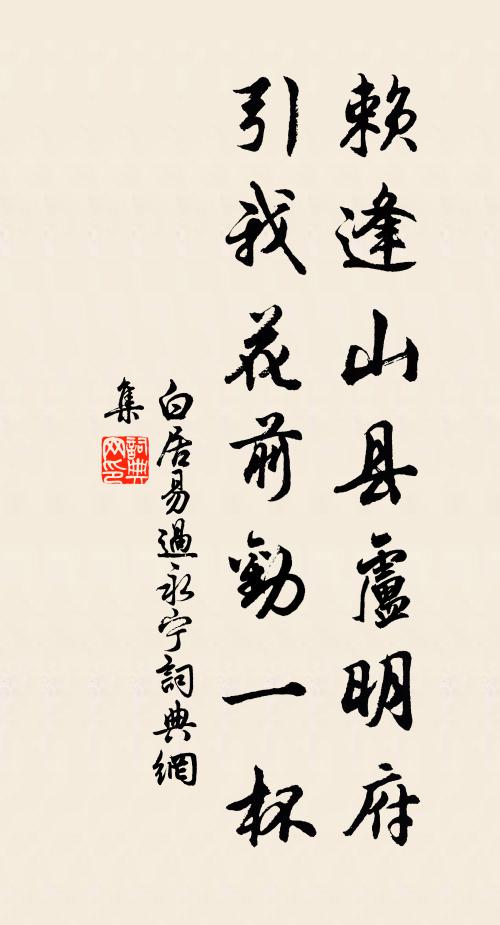 赖逢山县盧明府
引我花前勸一杯
白居易過永宁詞典網
集
詞典
网印